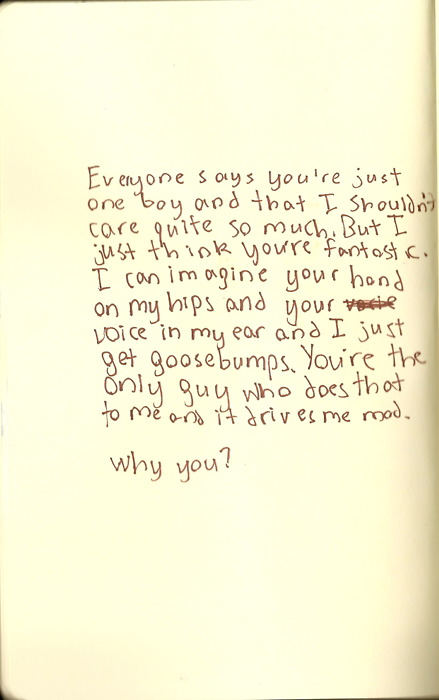 Everyone says you're just
one boy and that I shouldn't
care quite so much. But I
just think you're fantastic.
I can imagine your hand
on my hips and your
voice in my ear and I just
get goosebumps. You're the
only guy who does that
to me and it drives me mad.
Why you?